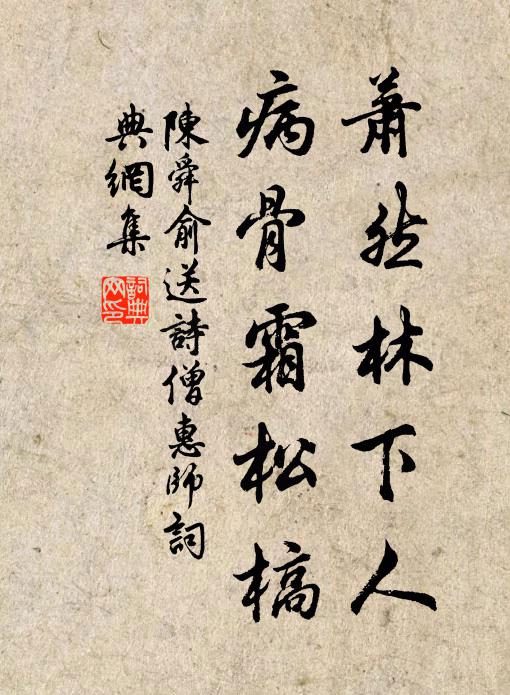 蕭然林下人
病骨霜松槁
陳舜俞送詩僧惠師詞
典網集
詞典
网印